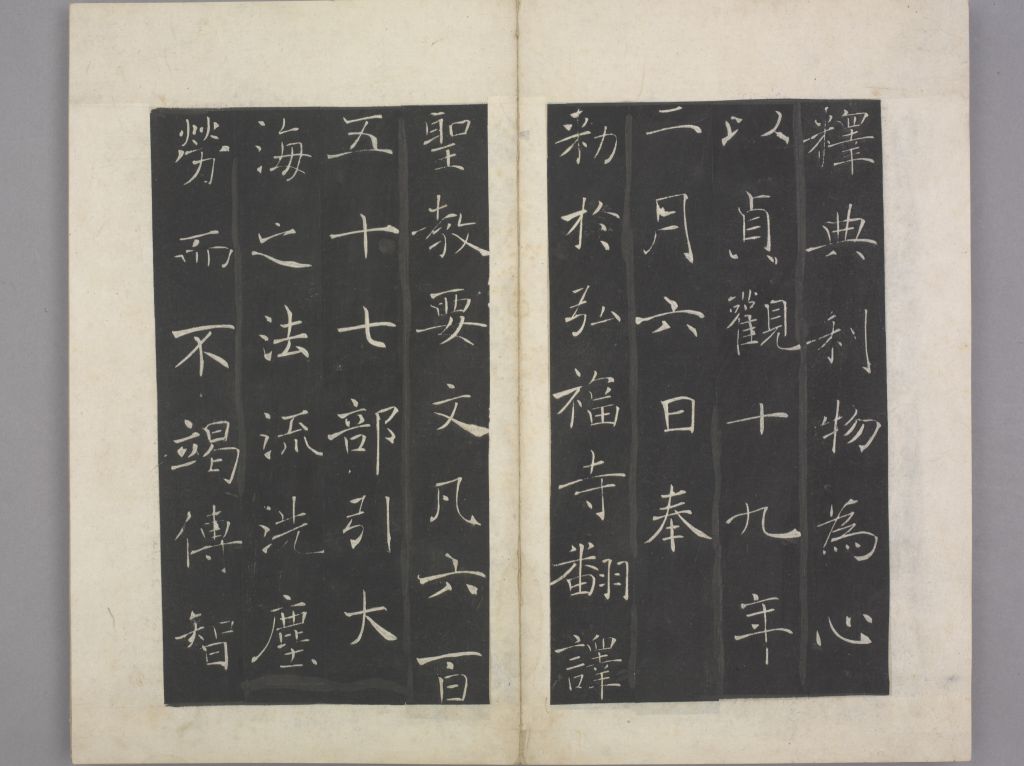 釋典利物為心
以貞觀十九年
二月六日奉
勑於弘福寺翻譯
聖教要文凡六百
五十七部引大
海之法流洗塵
勞而不竭傳智